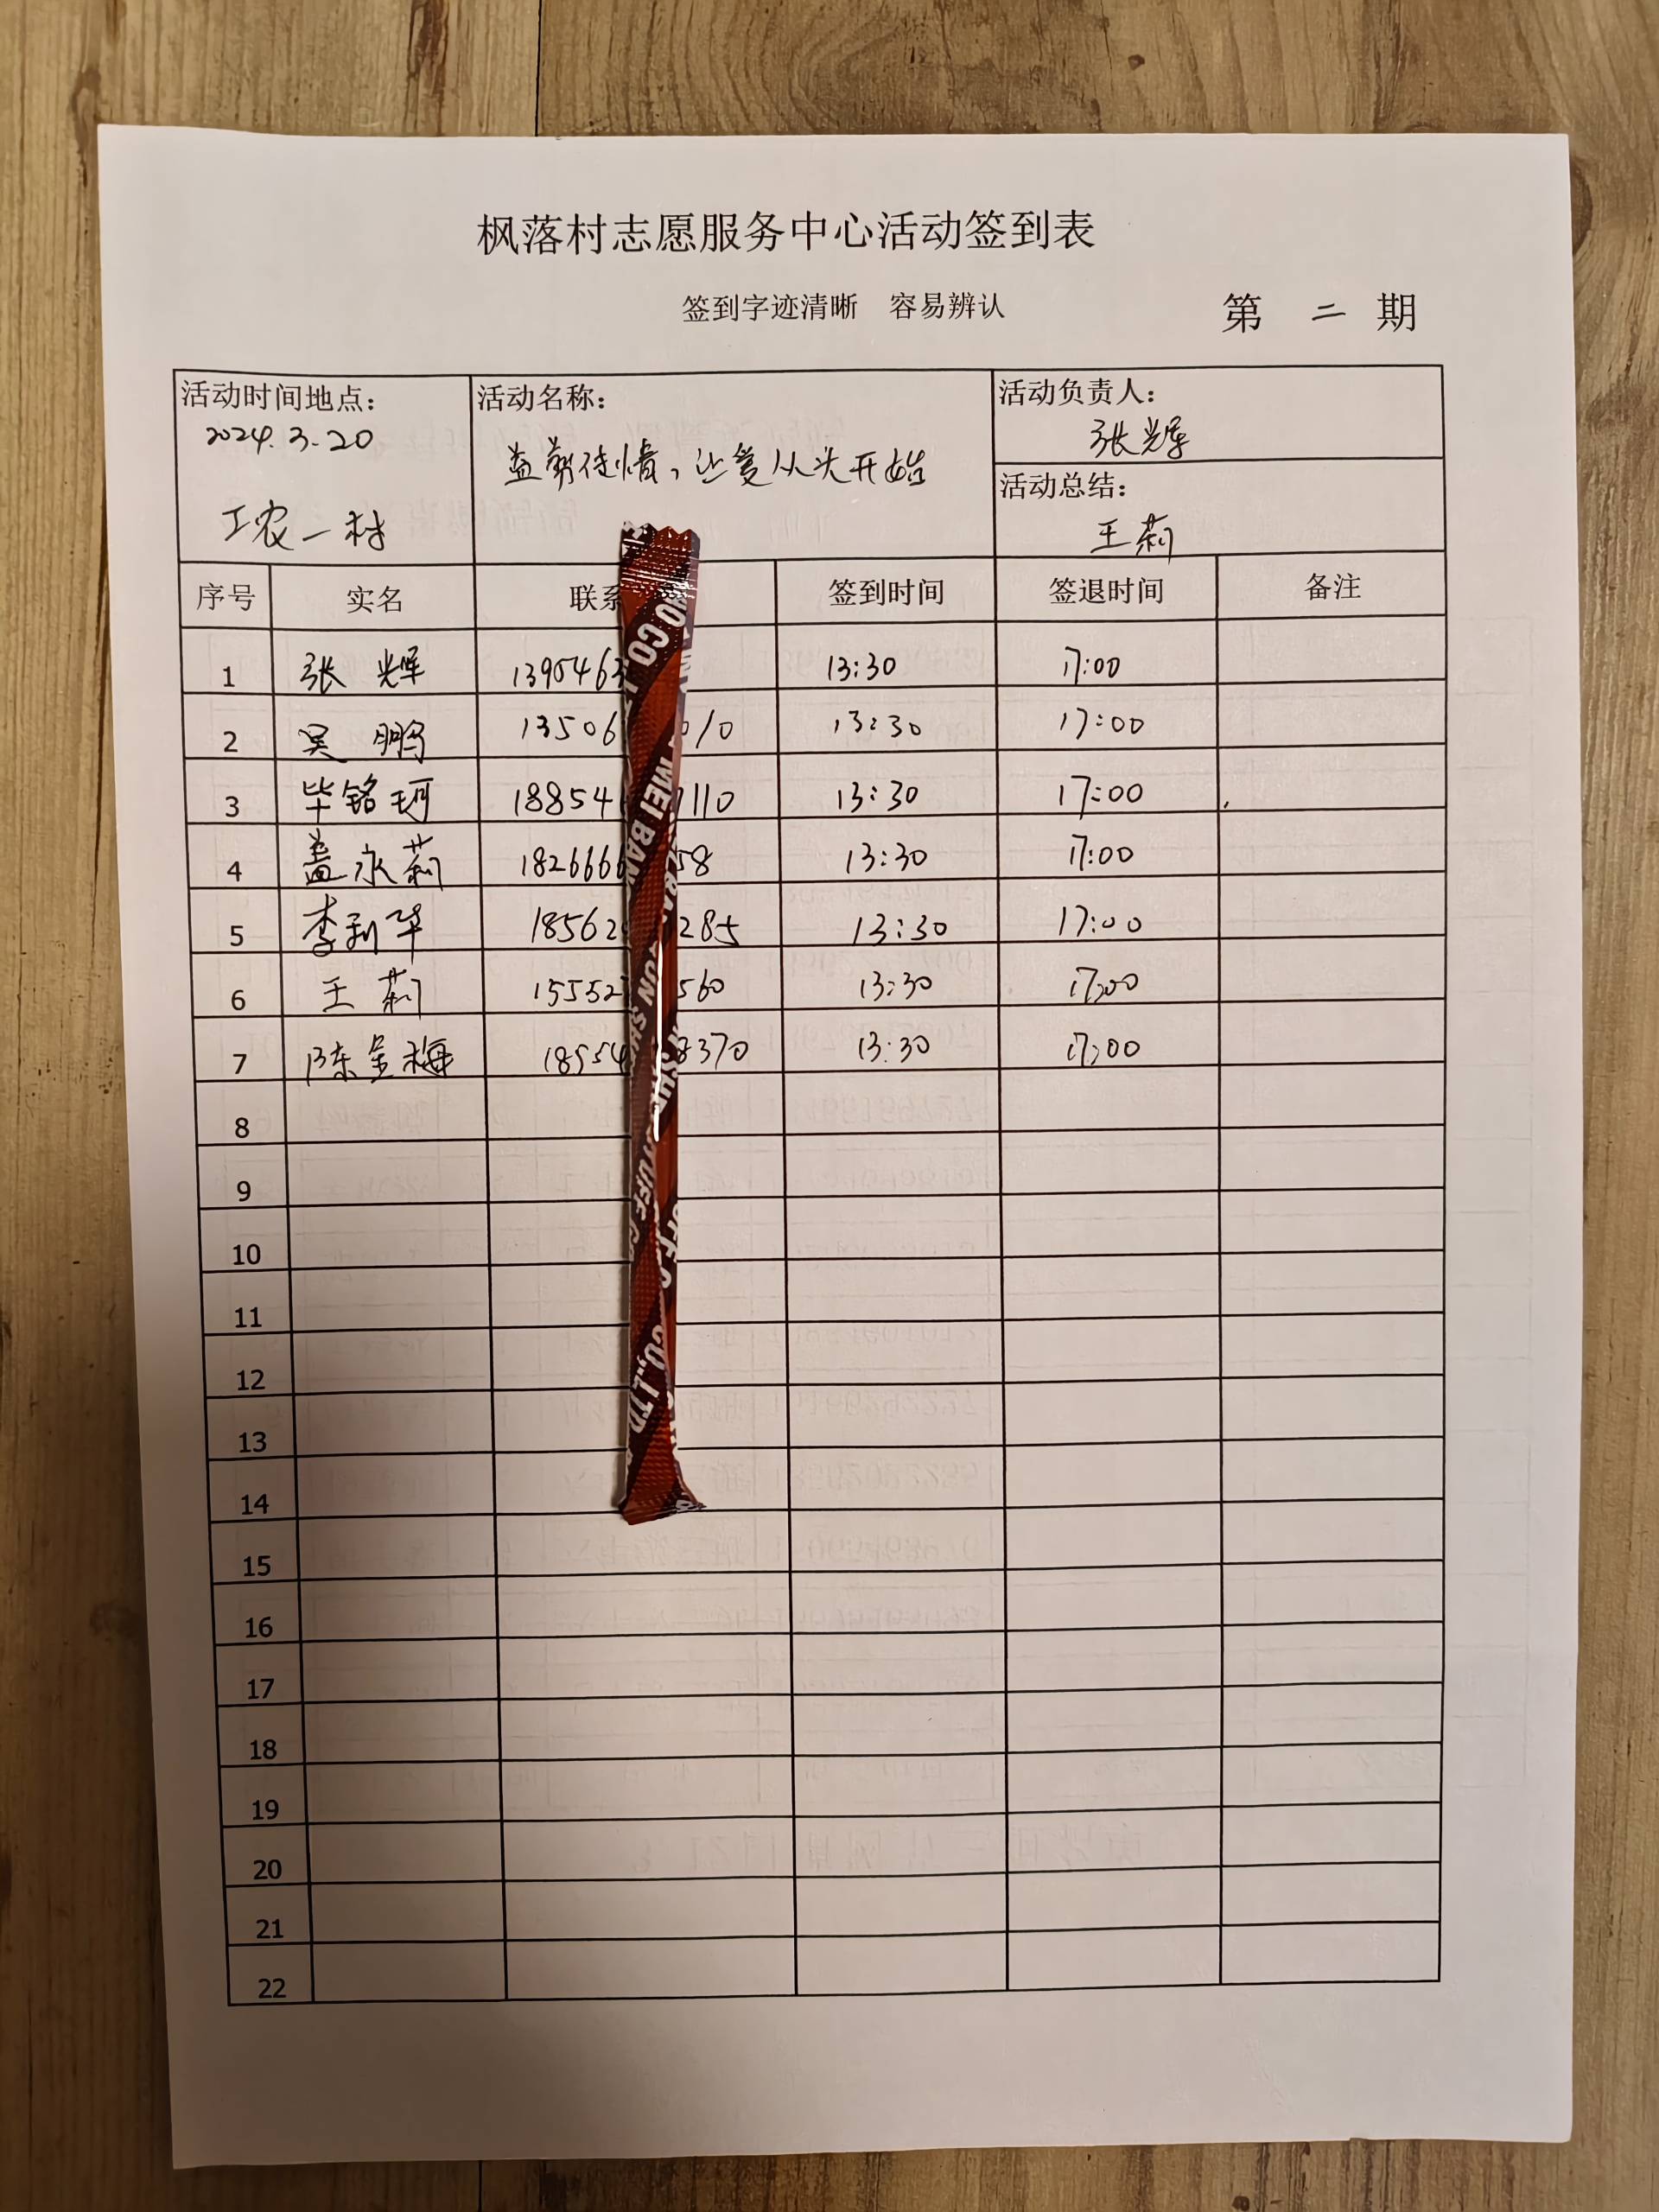 枫落村志愿服务中心活动签到表
签到字迹清晰 容易辨认 第 二 期
活动时间地点: 活动名称: 活动负责人:
2024.3-20 张辉
益剪传情,让爱从头开始
活动总结:
工农一村 王莉
序号 实名 联系 签到时间 签退时间 备注
1 张 辉 1390546 13:30 17:00
2 吴 鹏 13506 010 13:30 17:00
3 毕铭珂 18854 110 13:30 17:00
4 盖永莉 182666 58 13:30 17:00
5 李利华 18562 285 13:30 17:00
6 王 莉 15552 560 13:30 17:00
7 陈金梅 18554 8370 13:30 17:00
8
9
10
11
12
13
14
15
16
17
18
19
20
21
22
CO., LTD.